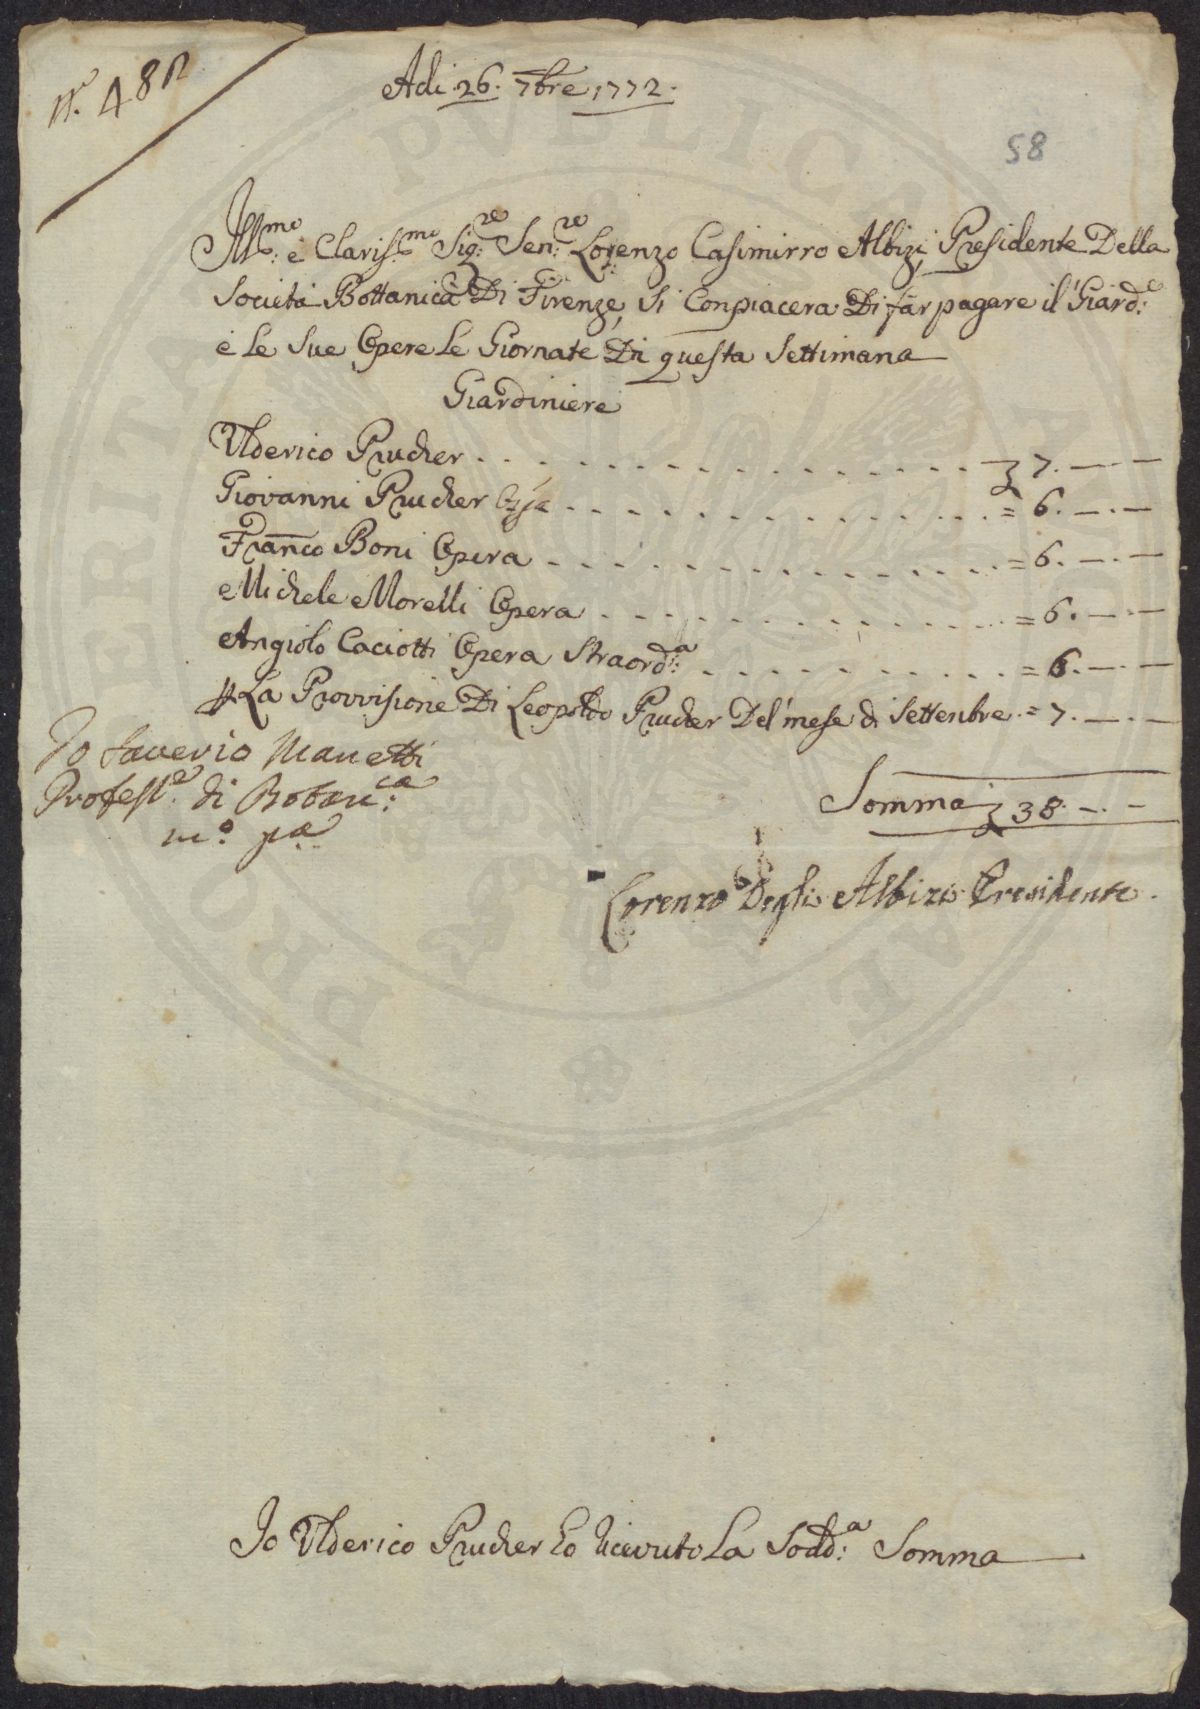 N.° 48
Adi 26. 7bre 1772.
58
Ill.mo e Claris.mo Sig.re Sen.re Lorenzo Casimirro Albizi Presidente Della
Società Bottanica Di Firenze, Si Conpiacera Di far pagare il Giard.e
e le Sue Opere le Giornate Di questa Settimana
Giardiniere
Ulderico Prucher . . . . . . . . . . . . . . . 7. — . —
Giovanni Prucher . . . . . . . . . . . . = 6. — . —
Franco Boni Opera . . . . . . . . . . . . = 6. — . —
Michele Morelli Opera . . . . . . . . . . . . = 6. — . —
Angiolo Caciotti Opera Straord.a . . . . . . . . . = 6. — . —
La Provvisione Di Leopoldo Prucher Del mese di Settenbre = 7. — . —
Io Saverio Manetti
Profess.e di Botan.ca
m.o p.a
Somma 38. — . —
Lorenzo Degli Albizi Presidente.
Io Ulderico Prucher ho ricevuto La Sodd.a Somma
PUBLICAE
PROSPERITATI